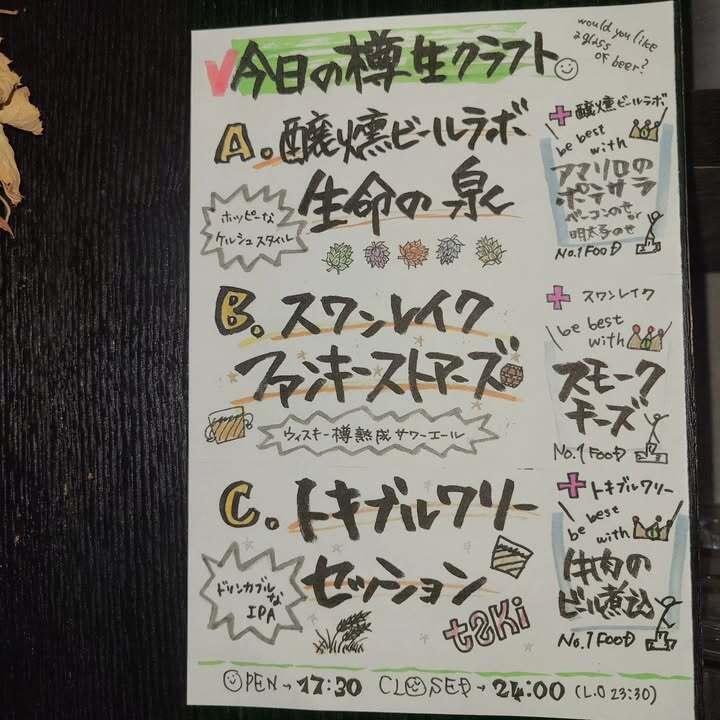 今日の樽生クラフト
would you like
a glass
of beer?
A. 醸燻ビールラボ
生命の泉
ホッピーな
ケルシュスタイル
+ 醸燻ビールラボ
be best
with
アマリロの
ポテサラ
ベーコンのせ or
明太子のせ
No.1 FOOD
B. スワンレイク
ファンキーストアーズ
ウィスキー樽熟成サワーエール
+ スワンレイク
be best
with
スモーク
チーズ
No.1 FOOD
C. トキブルワリー
セッション
ドリンカブルな
IPA
toki
+ トキブルワリー
be best
with
牛肉の
ビール煮込
No.1 FOOD
OPEN→17:30 CLOSED→24:00 (L.O 23:30)